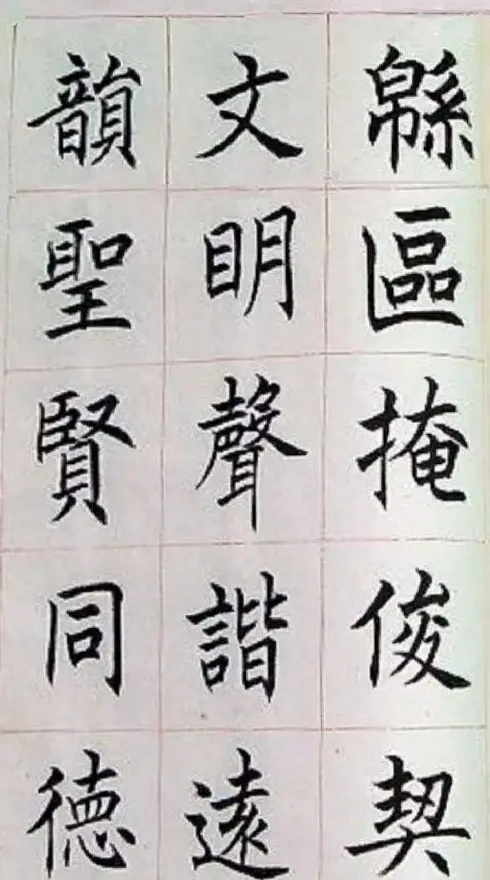 緜區掩俊契
文明聲諧遠
韻聖賢同德